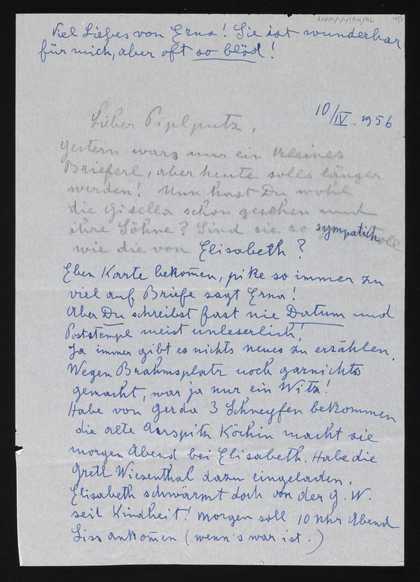 Viel Liebes von Erna! Sie ist wunderbar
für mich, aber oft so blöd!
10/IV. 1956
Lieber Piplputz,
Gestern wars nur ein kleines
Brieferl, aber heute solls länger
werden! Nun hast Du wohl
die Gisella schon gesehen und
ihre Söhne? Sind sie so sympatisch
wie die von Elisabeth?
Eben Karte bekom̄en, so immer zu
viel auf Briefe sagt Erna!
Aber Du schreibst fast nie Datum und
Poststempel meist unleserlich!
Ja immer gibt es nichts neues zu erzählen.
Wegen Brahmsplatz noch garnichts
gemacht, war ja nur ein Witz!
Habe von Gerda 3 Schnepfen bekommen
die alte Köchin macht sie
morgen Abend bei Elisabeth. Habe die
Gretl Wiesenthal dazu eingeladen.
Elisabeth schwärmt doch von der G. W.
seit Kindheit! Morgen soll 10 Uhr Abend
Liss ankom̄en (wenn's war ist.)